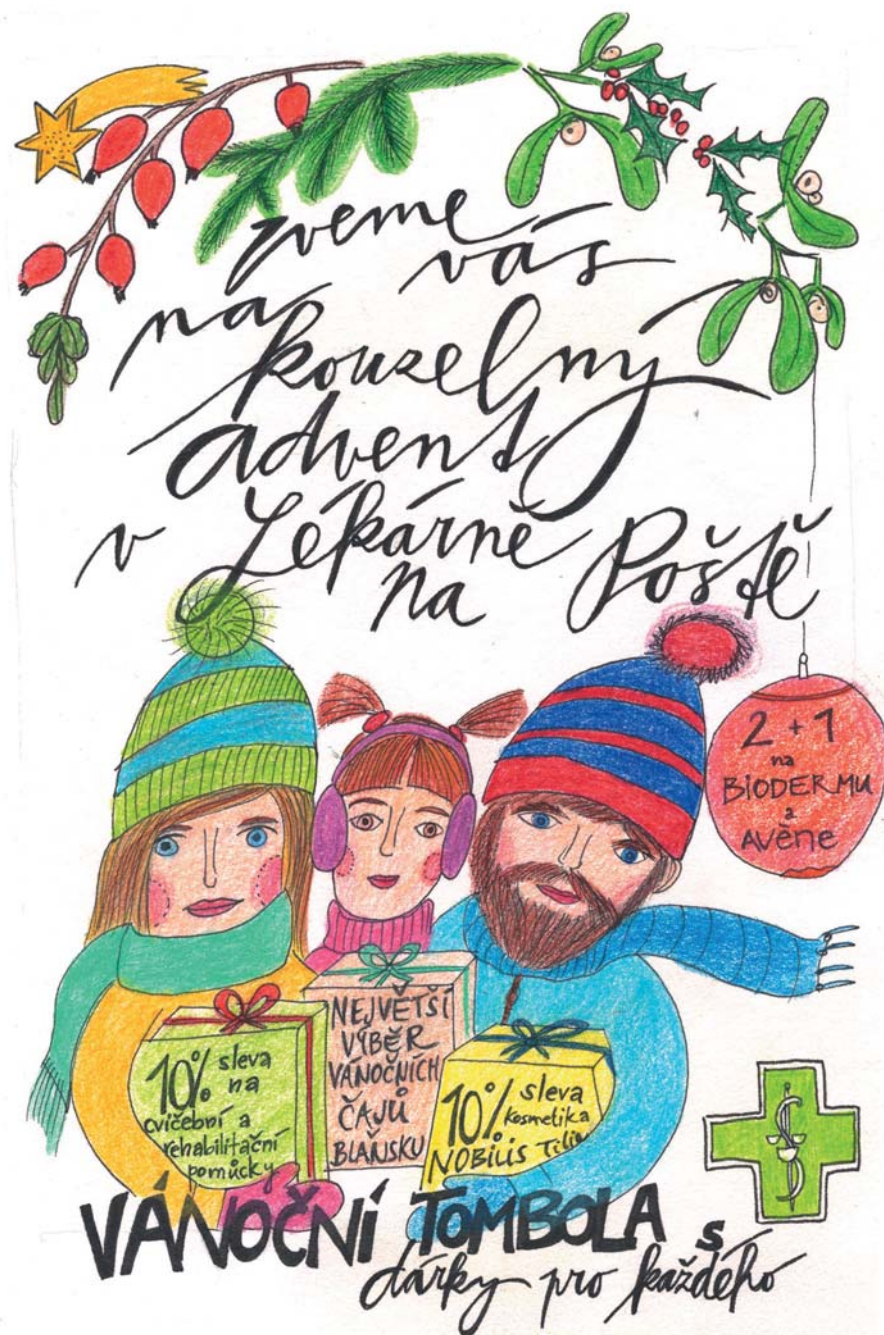 zveme vás
na
kouzelný
advent
v Lékárně
na Poště
2 + 1
na
BIODERMU
a
AVÈNE
10% sleva
na
cvičební a
rehabilitační
pomůcky
NEJVĚTŠÍ
VÝBĚR
VÁNOČNÍCH
ČAJŮ
BLANSKU
10% sleva
kosmetika
NOBILIS Tilia
VÁNOČNÍ TOMBOLA s
dárky pro každého